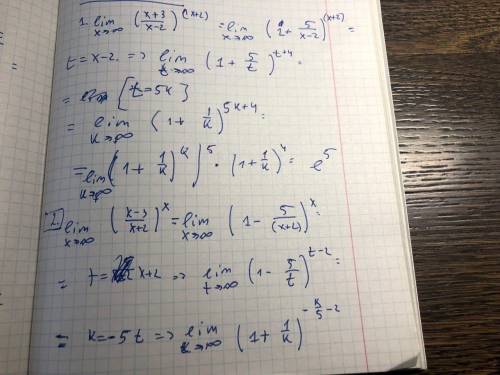 1. lim x→∞ ((x+3)/(x-2))^(x+2) = lim x→∞ (1+ 5/(x-2))^(x+2) =
t = x-2. => lim t→∞ (1 + 5/t)^(t+4) =
= [t=5k]
= lim k→∞ (1 + 1/k)^(5k+4) =
= lim k→∞ ((1 + 1/k)^k)^5 · (1+ 1/k)^4 = e^5
2. lim x→∞ ((x-3)/(x+2))^x = lim x→∞ (1 - 5/(x+2))^x =
= t = x+2 => lim t→∞ (1 - 5/t)^(t-2) =
= k = -5t => lim k→∞ (1 + 1/k)^(-k/5 - 2)